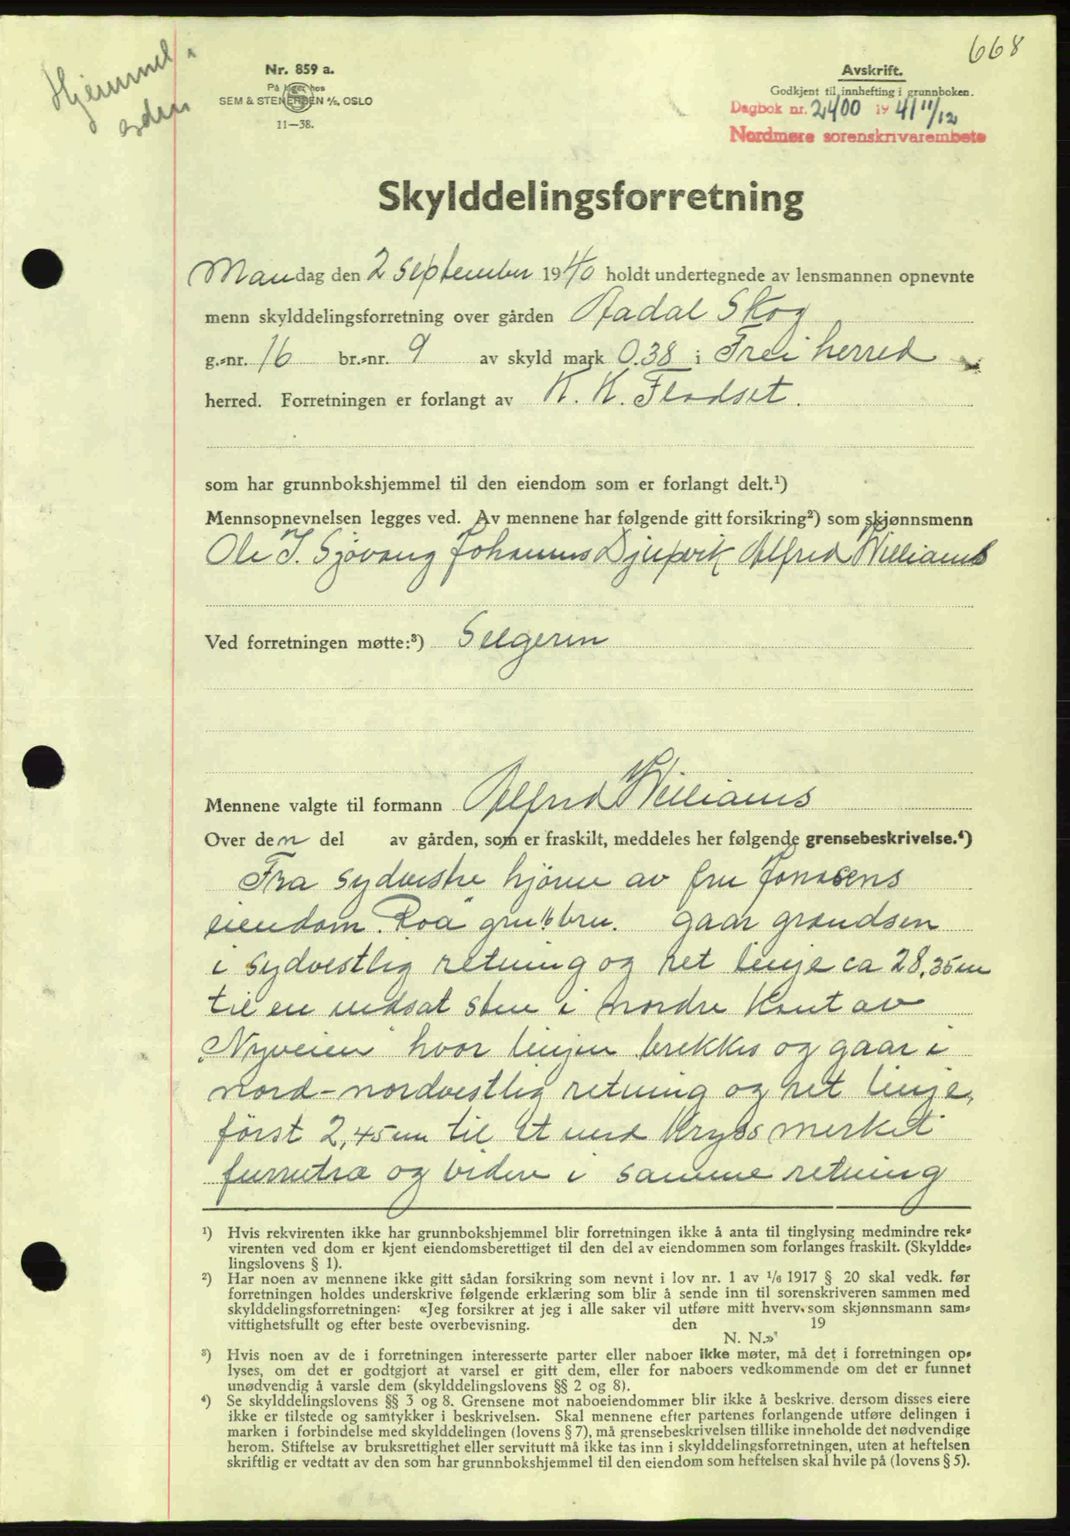 668
Hjemmel
Nr. 859 a.
På lager hos
SEM & STENERSEN A/S, OSLO
11—38.
Avskrift.
Godkjent til innhefting i grunnboken.
Dagbok nr. 2400 1941 11/12
Nordmøre sorenskrivarembete
Skylddelingsforretning
Mandag den 2 September 1940 holdt undertegnede av lensmannen opnevnte
menn skylddelingsforretning over gården Aadal Skog
g.-nr. 16 br.-nr. 9 av skyld mark 0.38 i Frei herred
herred. Forretningen er forlangt av K. K. Fladset.
som har grunnbokshjemmel til den eiendom som er forlangt delt.¹)
Mennsopnevnelsen legges ved. Av mennene har følgende gitt forsikring²) som skjønnsmenn
Ole I. Sjövang Johannes Djupvik Alfred Williams
Ved forretningen møtte:³) Selgeren
Mennene valgte til formann Alfred Williams
Over den del av gården, som er fraskilt, meddeles her følgende grensebeskrivelse.⁴)
Fra sydvestre hjörne av fru Jonasens
eiendom "Roa" gru 16 bru. gaar grændsen
i sydvestlig retning og ret linje ca 28,35 m
til en nedsat sten i nordre kant av
"Nyveien" hvor linjen brekkes og gaar i
nord-nordvestlig retning og ret linje,
först 2,45 m til et med kryss merket
furretræ og videre i samme retning
¹) Hvis rekvirenten ikke har grunnbokshjemmel blir forretningen ikke å anta til tinglysing medmindre rek-
virenten ved dom er kjent eiendomsberettiget til den del av eiendommen som forlanges fraskilt. (Skyldde-
lingslovens § 1).
²) Har noen av mennene ikke gitt sådan forsikring som nevnt i lov nr. 1 av 1/6 1917 § 20 skal vedk. før
forretningen holdes underskrive følgende erklæring som blir å sende inn til sorenskriveren sammen med
skylddelingsforretningen: «Jeg forsikrer at jeg i alle saker vil utføre mitt hverv som skjønnsmann sam-
vittighetsfullt og efter beste overbevisning. den 19
N. N.»
³) Hvis noen av de i forretningen interesserte parter eller naboer ikke møter, må det i forretningen op-
lyses, om det er godtgjort at varsel er gitt dem, eller for naboers vedkommende om det er funnet
unødvendig å varsle dem (skylddelingslovens §§ 2 og 8).
⁴) Se skylddelingslovens §§ 3 og 8. Grensene mot naboeiendommer blir ikke å beskrive dersom disses eiere
ikke er tilstede og samtykker i beskrivelsen. Skal mennene efter partenes forlangende utføre delingen i
marken i forbindelse med skylddelingen (lovens § 7), må grensebeskrivelsen tillike inneholde det nødvendige
herom. Stiftelse av bruksrettighet eller servitutt må ikke tas inn i skylddelingsforretningen, uten at heftelsen
skriftlig er vedtatt av den som har grunnbokshjemmel til den eiendom som heftelsen skal hvile på (lovens § 5).